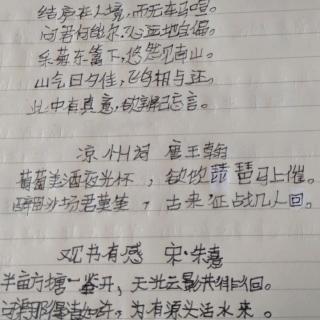 结庐在人境,而无车马喧。
问君何能尔,心远地自偏。
采菊东篱下,悠然见南山。
山气日夕佳,飞鸟相与还。
此中有真意,欲辨已忘言。
凉州词 唐王翰
葡萄美酒夜光杯,欲饮琵琶马上催。
醉卧沙场君莫笑,古来征战几人回。
观书有感 宋·朱熹
半亩方塘一鉴开,天光云影共徘徊。
问渠那得清如许,为有源头活水来。